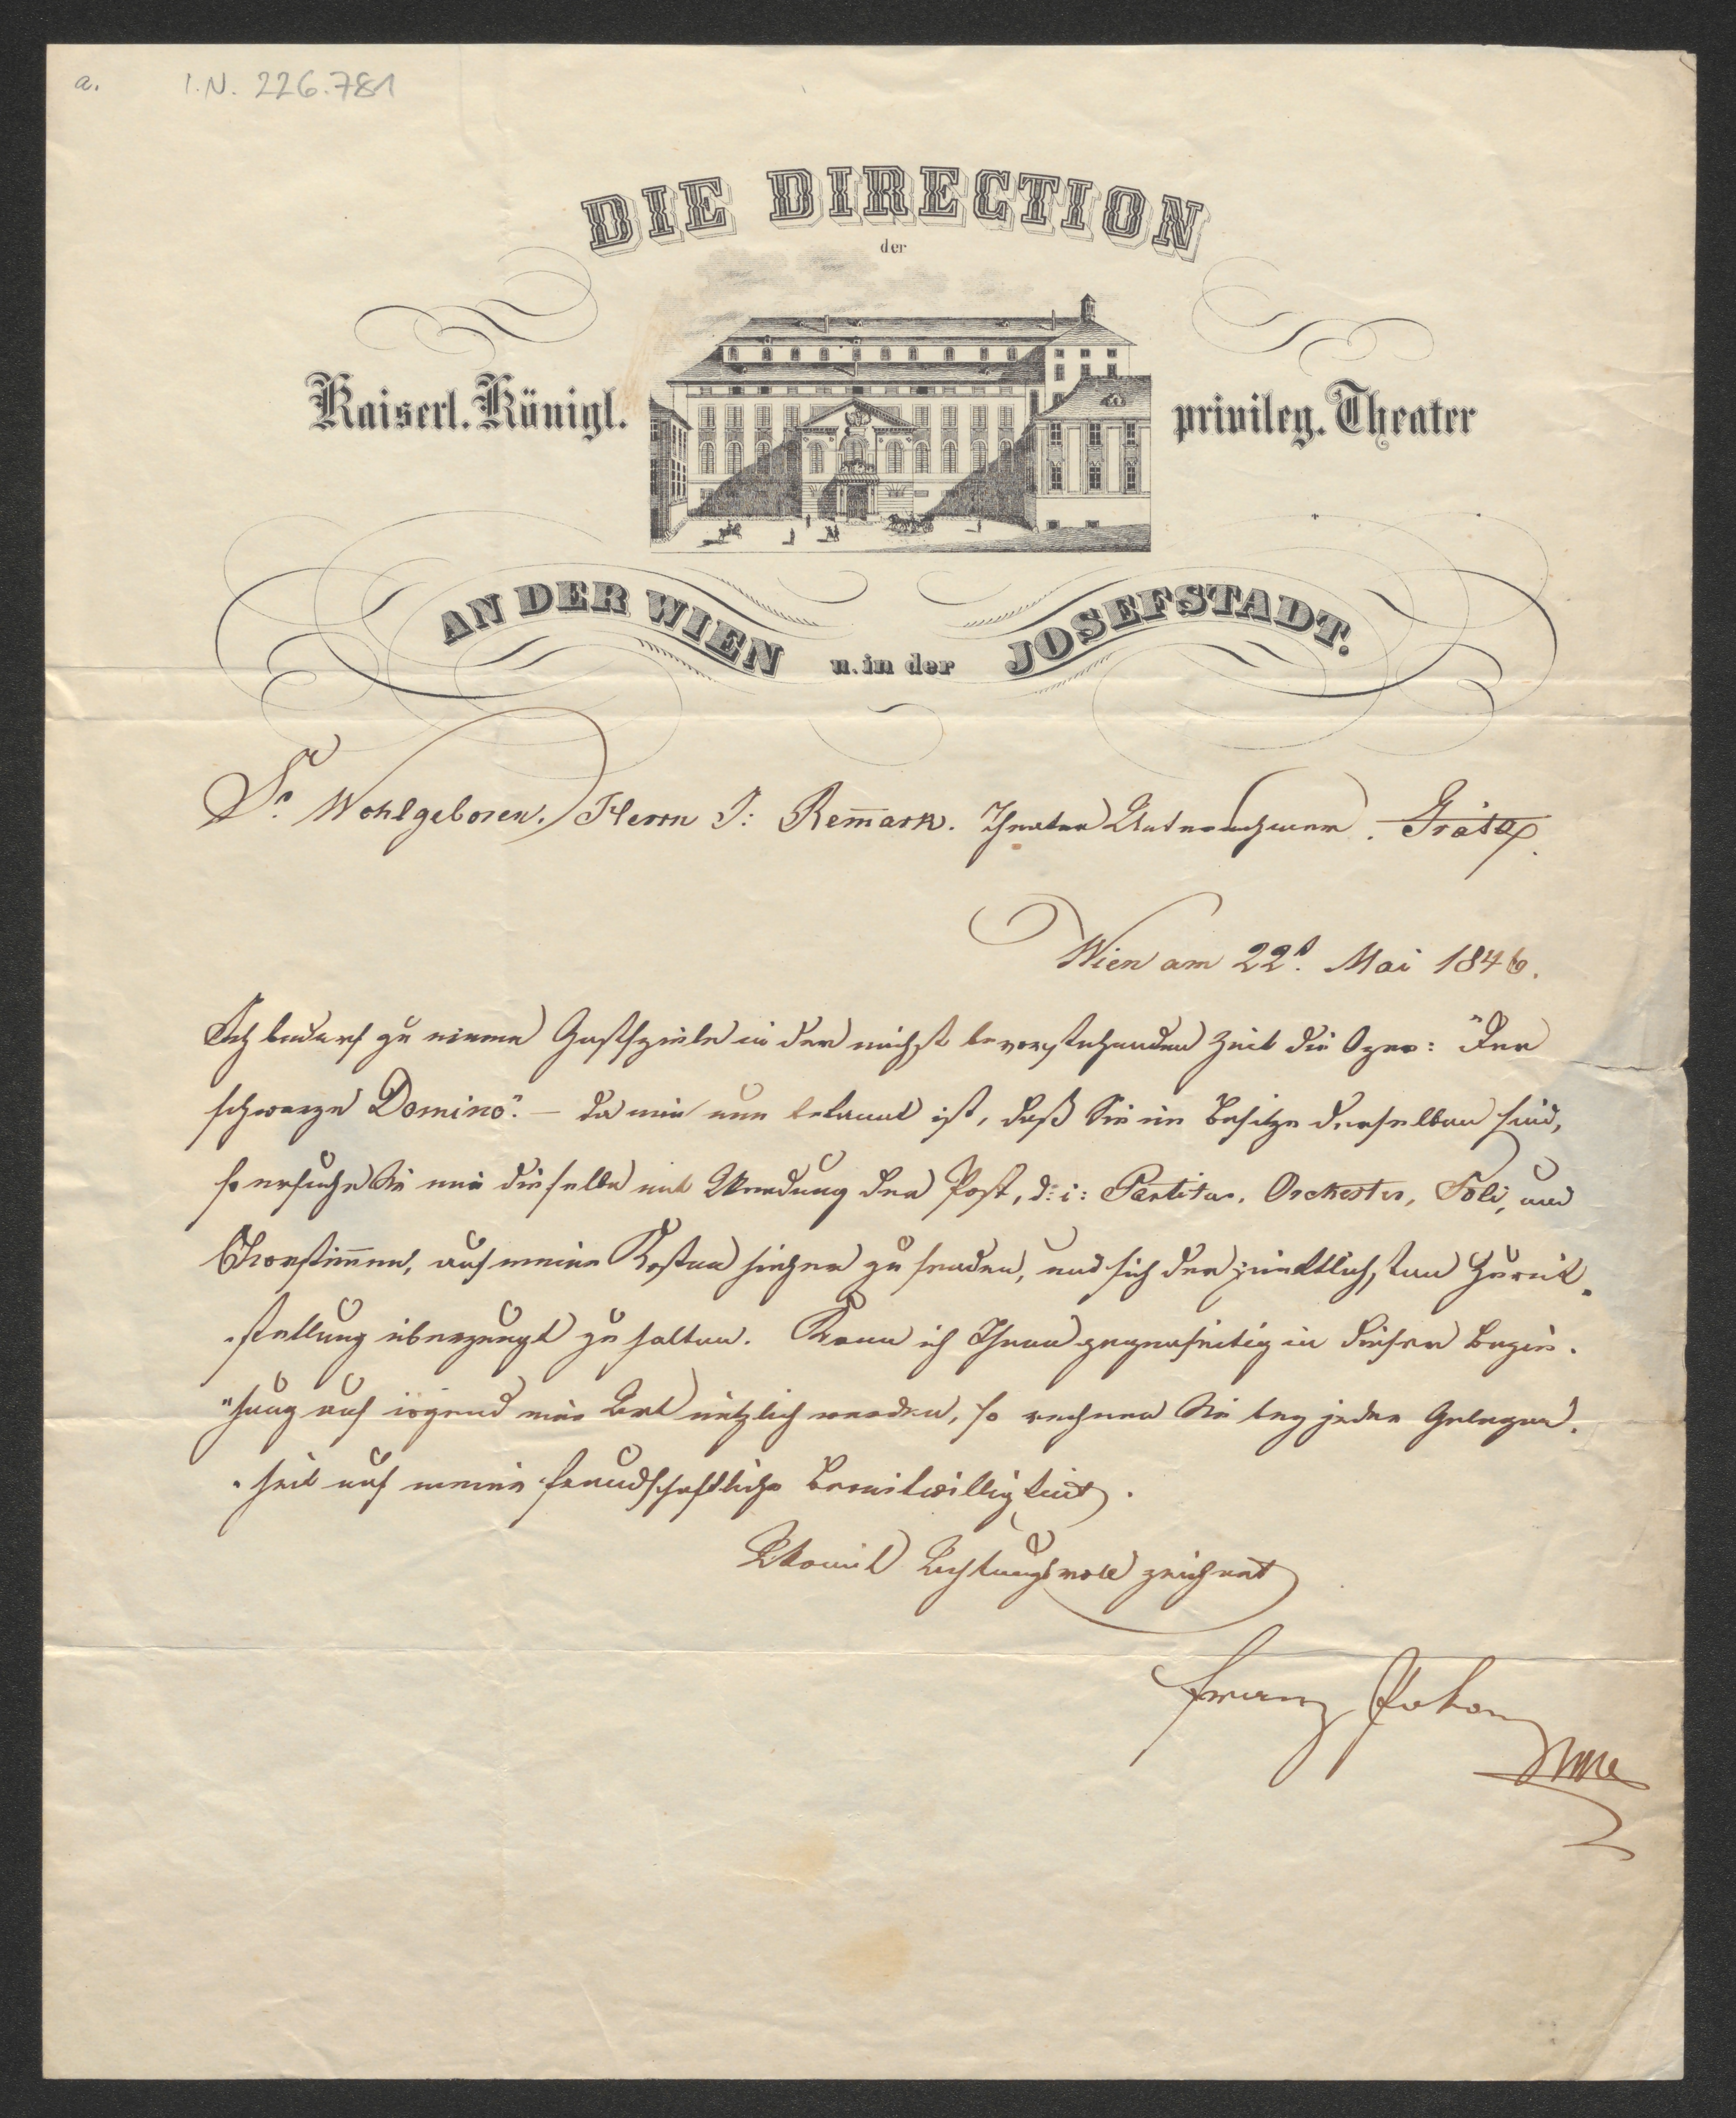 a. I.N. 226.781
DIE DIRECTION
der
Kaiserl. Königl. privileg. Theater
AN DER WIEN u. in der JOSEFSTADT.
Sr. Wohlgeboren. Herrn J: Rem̅ark. Theater Unternehmer. Grätz.
Wien am 22t. Mai 1846.
Ich bedarf zu einem Gastspiele in der nächst bevorstehenden Zeit die Oper: "Der
schwarze Domino". – Da mir nun bekannt ist, daß Sie im Besitze derselben sind,
so ersuche Sie mir dieselbe mit Wendung der Post, d: i: Partitur, Orchester, Soli, und
Chorstim̅en, auf meine Kosten hieher zu senden, und sich der pünktlichsten Zurük-
-stellung überzeugt zu halten. Kann ich Ihnen gegenseitig in dieser Bezie-
"hung auf irgend eine Art nützlich werden, so rechnen Sie bey jeder Gelegen-
-heit auf meine freundschaftliche Bereitwilligkeit.
Womit Achtungsvoll zeichnet
Franz Pokorny